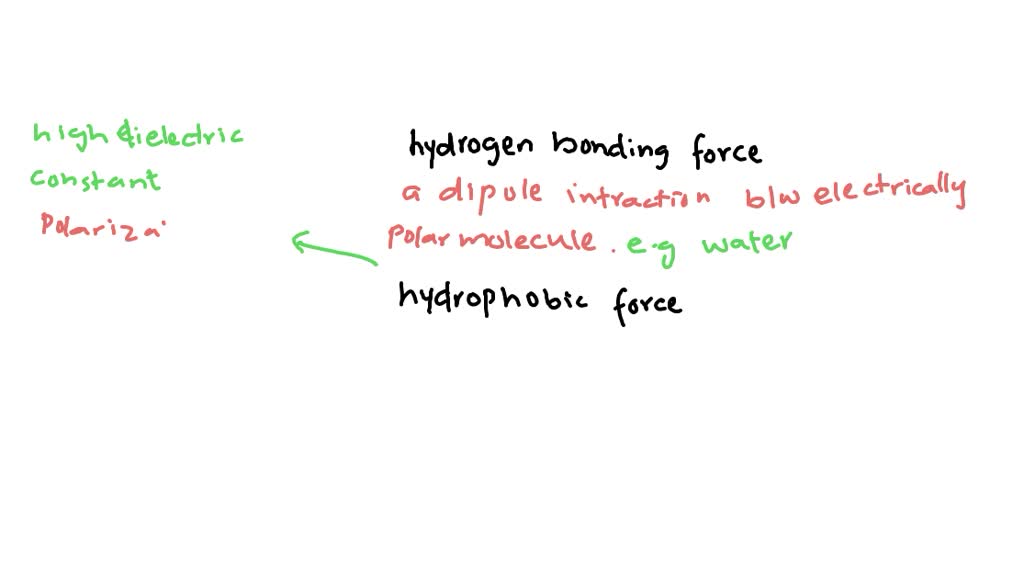 high dielectric
constant
Polariza
hydrogen bonding force
a dipole intraction b/w electrically
Polar molecule. e.g water
hydrophobic force